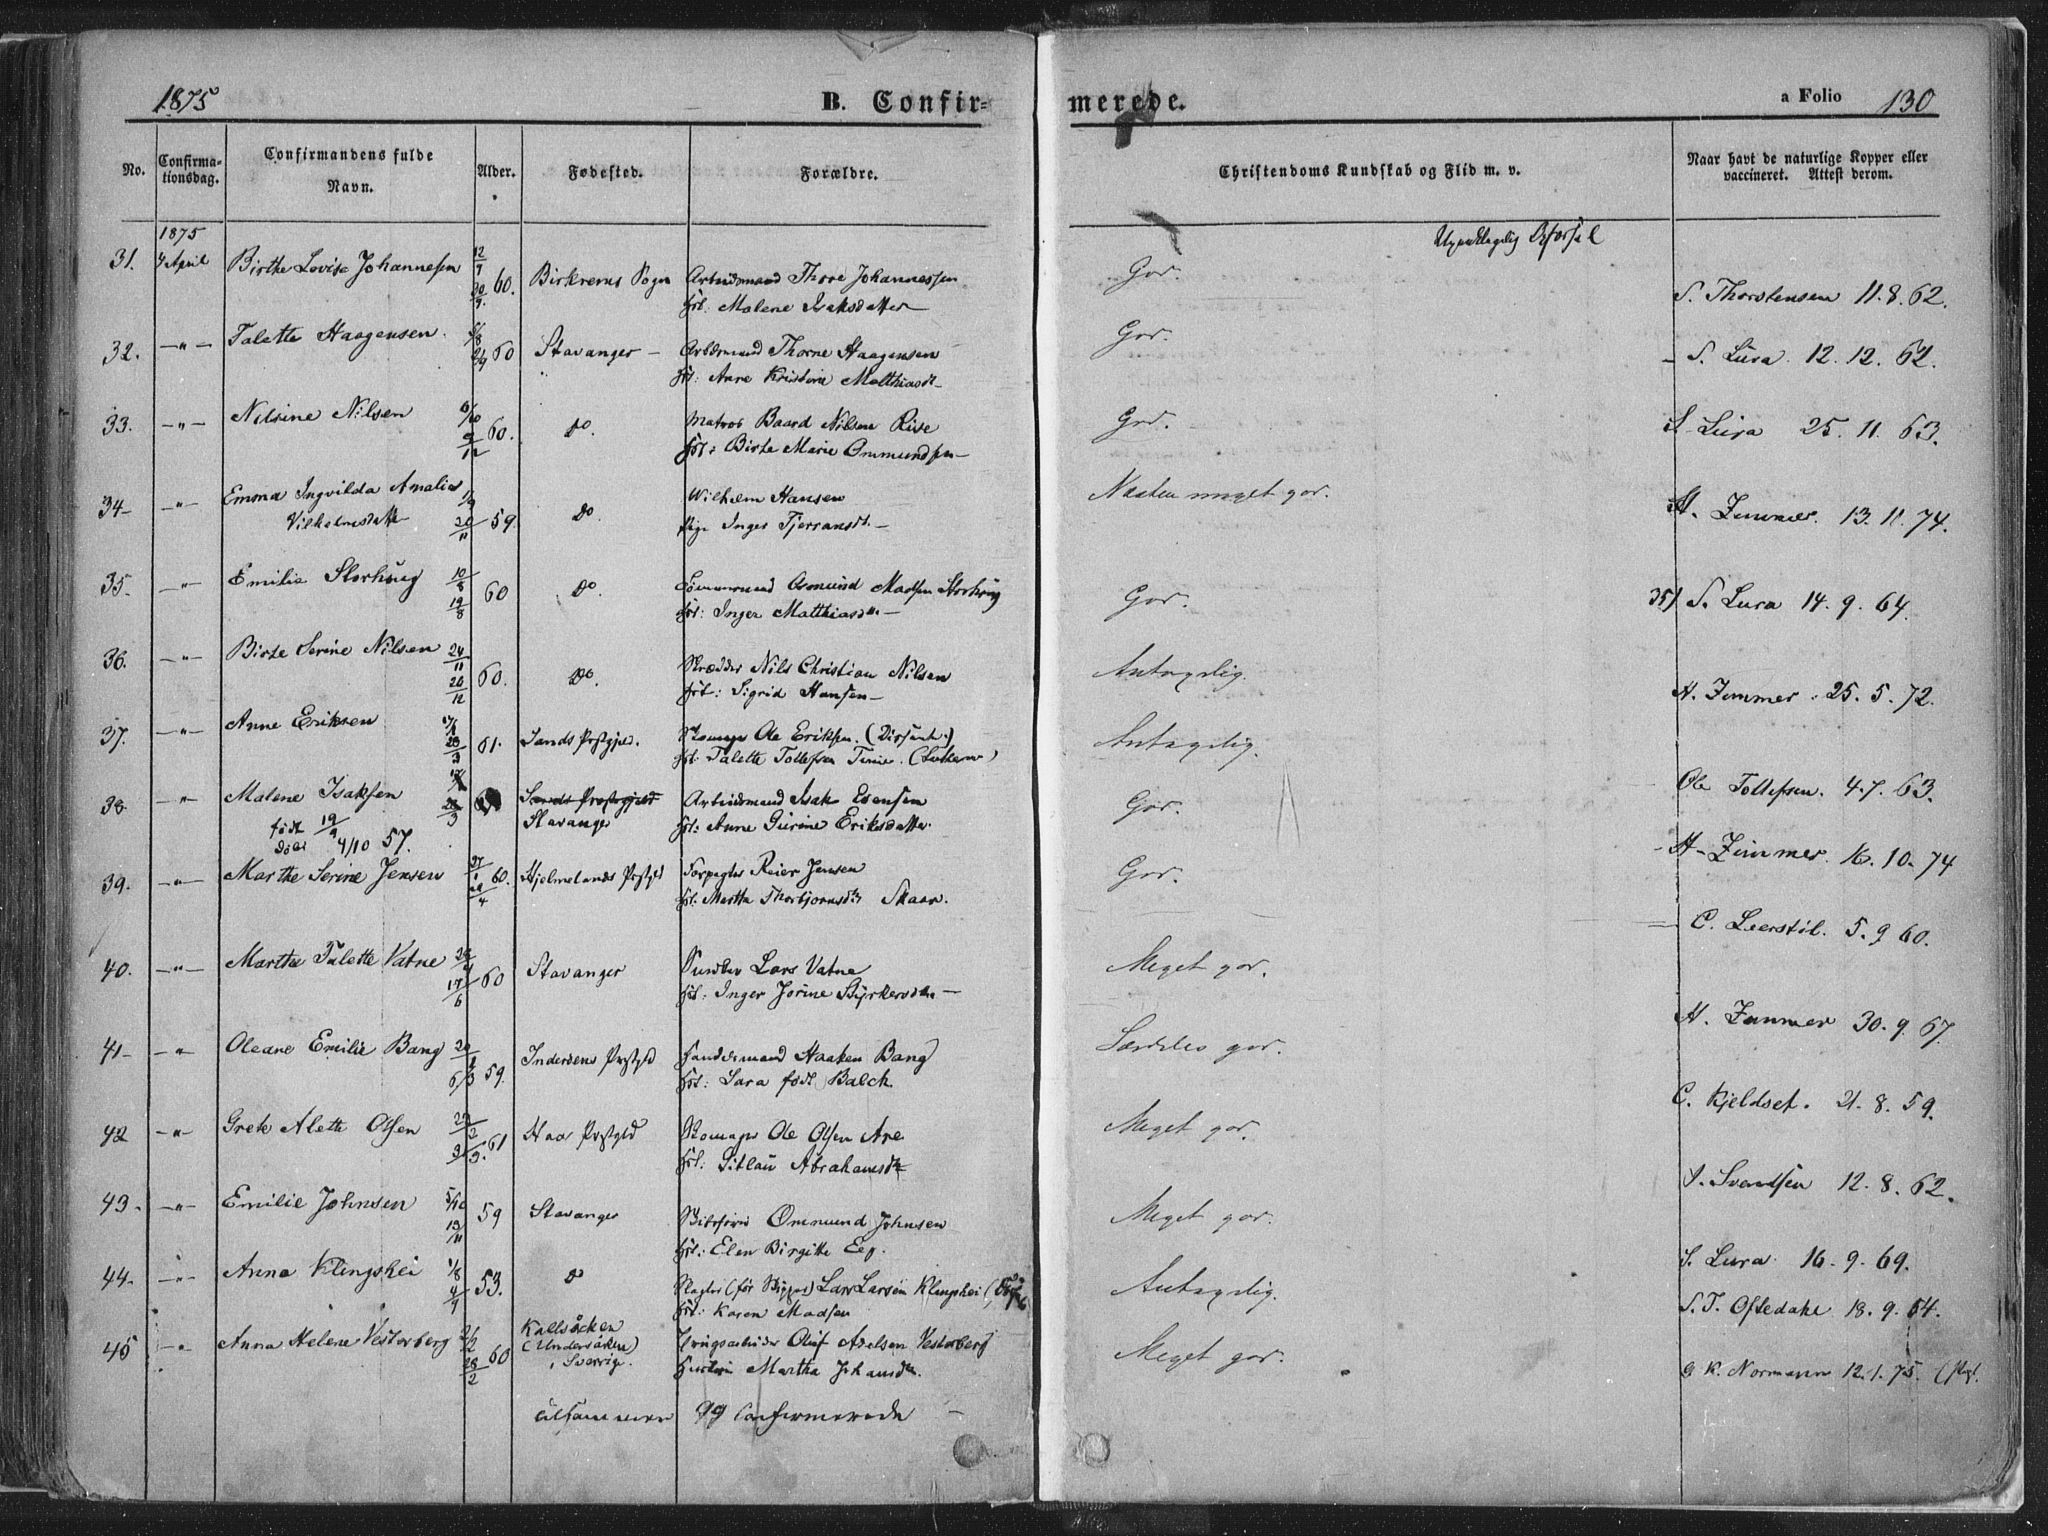 1875
B. Confir-
merede.
a Folio 130
No.
Confirmationsdag.
Confirmandens fulde Navn.
Alder.
Fødested.
Forældre.
Christendoms Kundskab og Flid m. v.
Naar havt de naturlige Kopper eller vaccineret. Attest derom.
1875
31. 4 April Birthe Lovise Johannesen 12/7 20/9 60. Birkrems Sogn Arbeidsmand Thore Johannessen
Hst. Malene Isaksdatter
God.
S. Thorstensen 11.8.62.
32. —"— Talette Haagensen 60 Stavanger — Thorne Haagensen
Hst: Anne Kristine Matthiasdt
God.
S. Lura 12.12.62.
33. —"— Nilsine Nilsen 6/10 9/12 60. Do. Matros Baard Nilsen Rise
Hst: Birte Marie Ommundsen
God.
S. Lura 25.11.63.
34 —"— Emma Ingvilda Amalia
Vilhelmsdatt 1/9 20/11 59. Do. Wilhelm Hansen
Pige Inger Tjerransdt.
Næsten meget god.
H. Zimmer. 13.11.74.
35. —"— Emilie Storhoug 10/8 19/8 60 Do. Asmund Madsen Storhoug
Hst: Inger Matthiasdt
God.
35/ S. Lura 14.9.64.
36. —"— Birte Serine Nilsen 24/11 20/12 60. Do. Skrædder Nils Christian Nilsen
Hst: Sigrid Hansen
Antagelig.
H. Zimmer. 25.5.72.
37. —"— Anne Eriksen 61. Sands Prstgjeld. Skomager Ole Eriksen. (Dissenter)
Hst. Talette Tollefsen (Lutheraner)
Antagelig.
Ole Tollefsen. 4.7.63.
38. —"— Malene Isaksen
født 19/9
Døbt 4/10 57. Sands Prstgjeld
Stavanger Arbeidsmand Isak Evensen
Hst: Anne Gurine Eriksdatter
God.
H. Zimmer. 16.10.74
39. —"— Marthe Serine Jensen 60. Hjelmelands Prstgld Forpagter Reier Jensen
Hst. Martha Thorbjørnsdtr Skaar.
God.
C. Leerstøl. 5.9 60.
40. —"— Marthe Talette Vatne 17/6 60 Stavanger Snedker Lars Vatne
Hst: Inger Jorine Styrkersdtr
Meget god.
H. Zimmer 30.9.67.
41 —"— Oleane Emilie Bang 6/3 59. Inderøens Prstgld Handelsmand Haaken Bang
Hst: Sara født Balck
Særdeles god.
C. Kjeldset. 21.8.59.
42 —"— Grete Alette Olsen 22/2 3/3. 61 Haa Prstgld Skomager Ole Olsen Are
Hst: Sitlau Abrahamsdtr
Meget god.
S. Svendsen 12.8.62.
43. —"— Emilie Johnsen 5/10 13/11 59 Stavanger Ommund Johnsen
Hst: Elen Birgitte Eeg.
Meget god.
S. Lura 16.9.69.
44. —"— Anna Klingshei 1/8 4/9 53. Do (før Skipper) Lars Larsen Klingshei
Hst: Karen Madsen
Antagelig.
S. T. Oftedahl 18.9.54.
45 —"— Anna Helene Vesterberg 28/2 60 Kallsåcken
(Undersåker)
i Sverrig. Oluf Axelsen Vesterberg
Hustru Martha Johansdtr.
Meget god.
G. K. Normann 12.1.75.
tilsammen 99 Confirmerede